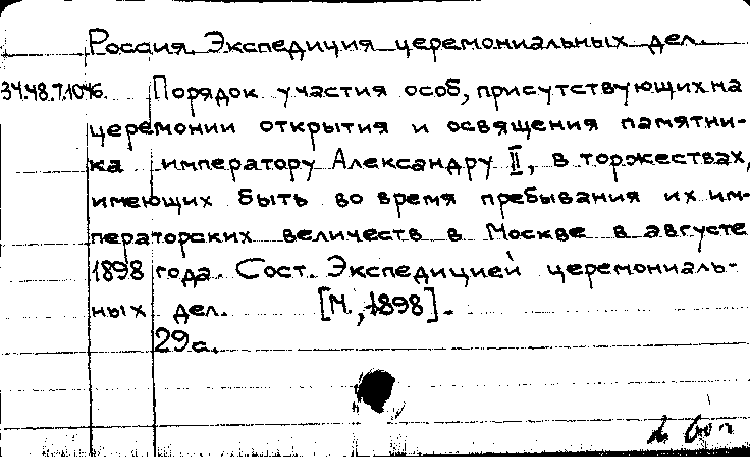 Россия. Экспедиция церемониальных дел.
34.48.7.1046. Порядок участия особ, присутствующих на
церемонии открытия и освящения памятни-
ка императору Александру II, в торжествах,
имеющих быть во время пребывания их им-
ператорских величеств в Москве в августе
1898 года. Сост. Экспедицией церемониаль-
ных дел. [М., 1898].
29с.